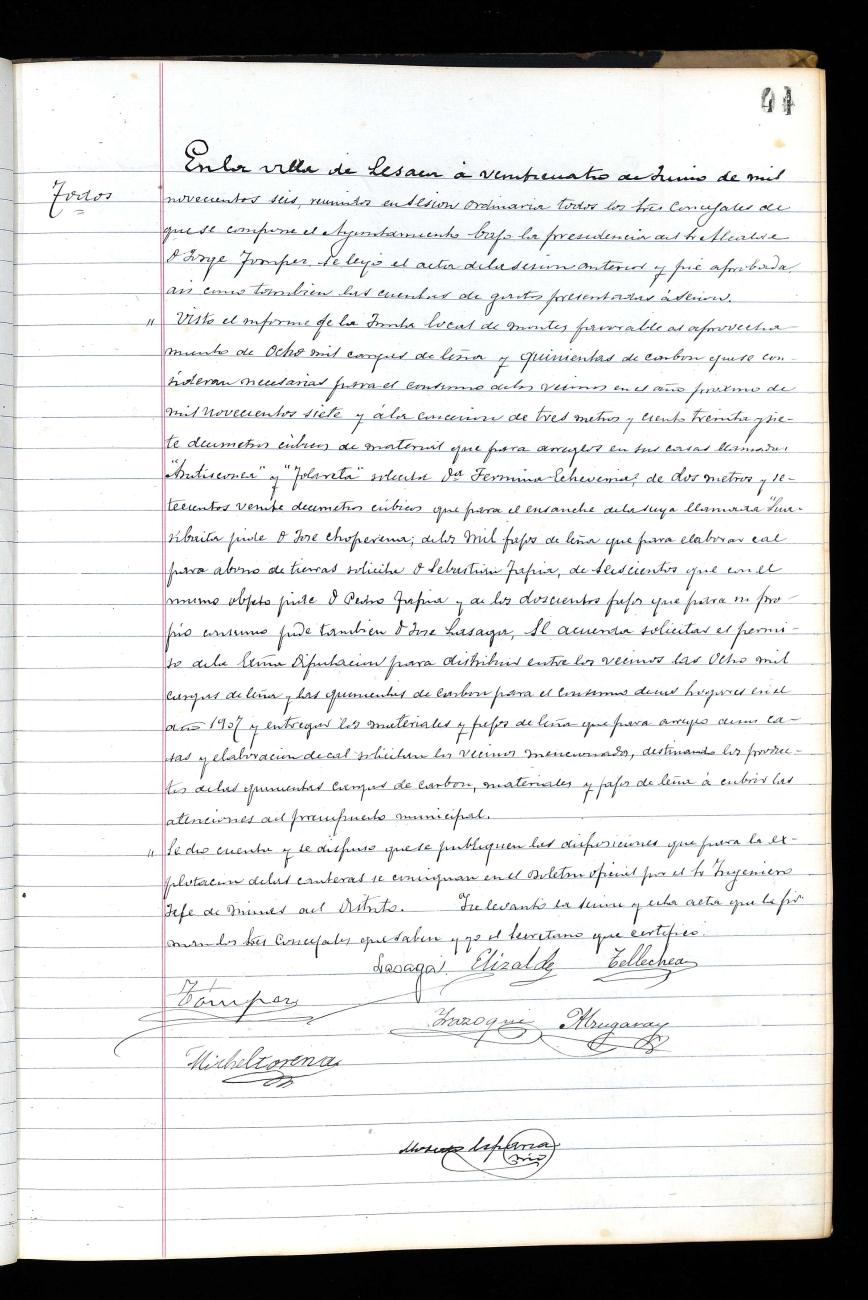 94
En la villa de Lesaca á veinticuatro de Junio de mil
Todos
novecientos seis, reunidos en sesion ordinaria todos los Sres Concejales de
que se compone el Ayuntamiento bajo la presidencia del Sr Alcalde
D Jorge Tompes, se leyó el acta de la sesion anterior y fué aprobada,
asi como tambien las cuentas de gastos presentadas á sesion.
" Visto el informe de la Junta local de montes favorable al aprovecha
miento de Ocho mil cargas de leña y quinientas de carbon que se con-
sideran necesarias para el consumo de los vecinos en el año proximo de
mil novecientos siete y á la concesion de tres metros y ciento treinta y sie-
te decimetros cúbicos de material que para arreglos en sus casas llamadas
y solicita Dª Fermina Echeverria, de dos metros y se-
tecientos veinte decimetros cúbicos que para el ensanche de la suya llamada
pide D José Choperena; de los Mil fajos de leña que para elaborar cal
para abono de tierras solicita D Sebastian Tapia, de Seiscientos que con el
mismo objeto pide D Pedro Tapia y de los doscientos fajos que para su pro-
pio consumo pide tambien D Jose Lasaga, Se acuerda solicitar el permi-
so de la Exma Diputacion para distribuir entre los vecinos las Ocho mil
cargas de leña y las quinientas de carbon para el consumo de sus hogares en el
año 1907 y entregar los materiales y fajos de leña que para arreglo de sus ca-
sas y elaboracion de cal solicitan los vecinos mencionados, destinando los produc-
tos de las quinientas cargas de carbon, materiales y fajos de leña á cubrir las
atenciones del presupuesto municipal.
" Se dio cuenta y se dispuso que se publiquen las disposiciones que para la ex-
plotacion de las canteras se consignan en el Boletin oficial por el Sr Ingeniero
Jefe de Minas del Distrito. Se levantó la sesion y esta acta que la fir
man los Sres Concejales que saben y yo el Secretario que certifico.
Lasaga Elizalde Tellechea
Tompes
Irazoqui
Micheltorena